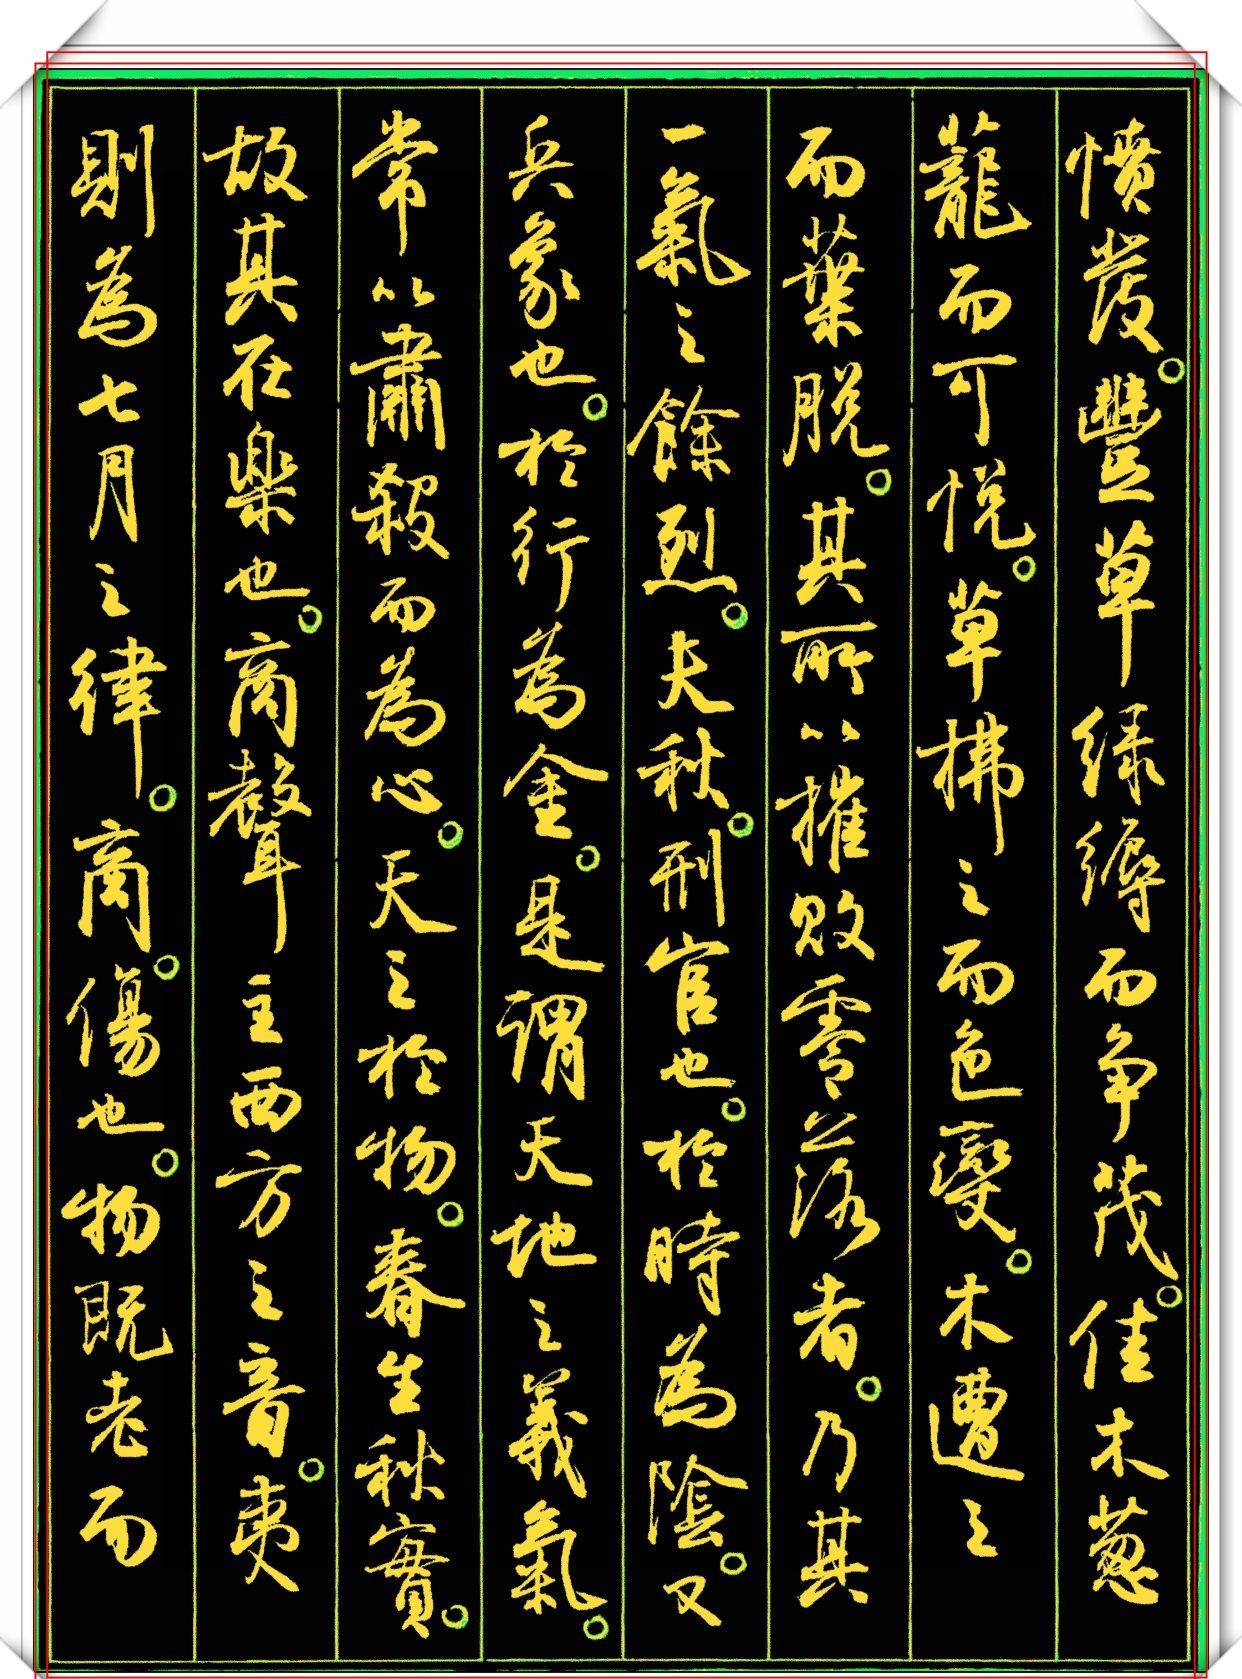 憤發。豐草緑縟而争茂。佳木葱
蘢而可悦。草拂之而色變。木遭之
而葉脱。其所以摧敗零落者。乃其
一氣之餘烈。夫秋。刑官也。於時為陰。又
兵象也。於行為金。是謂天地之義氣。
常以肅殺而為心。天之於物。春生秋實。
故其在樂也。商聲主西方之音。夷
則為七月之律。商。傷也。物既老而